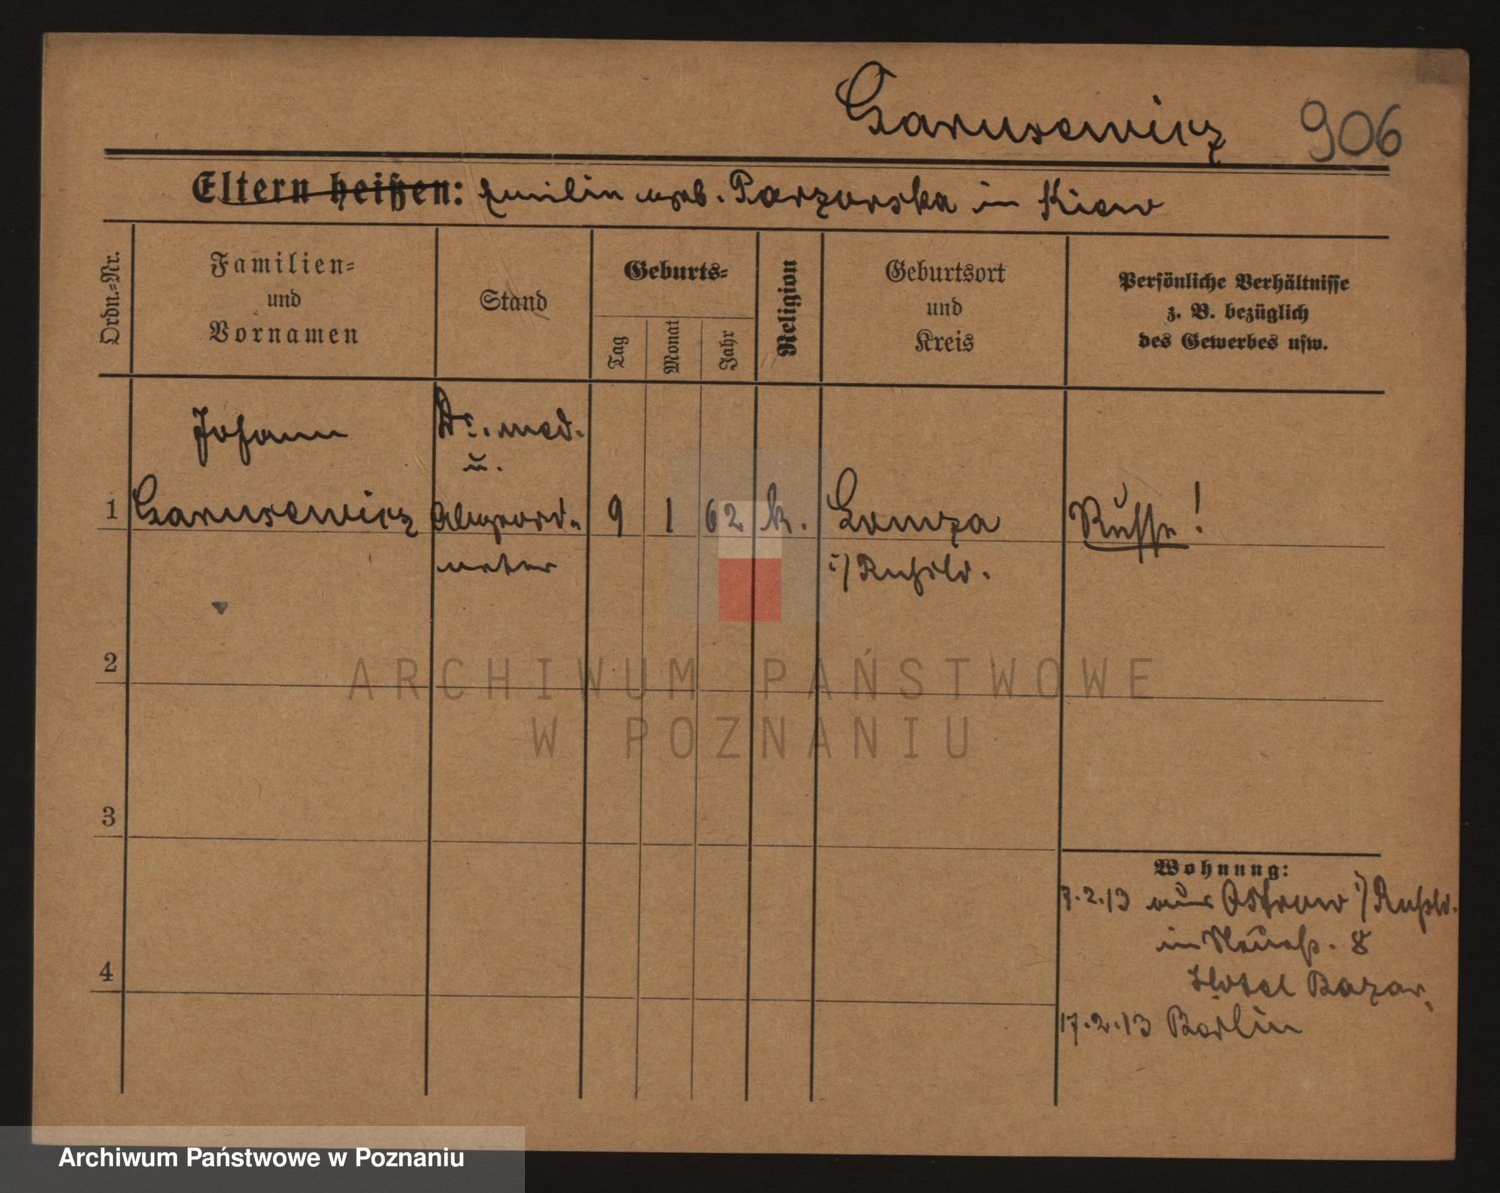 Garusewicz 906
Eltern heißen: Emilin geb. Parzorska in Kiew
Ordn.=Nr.
Familien=
und
Vornamen
Stand
Geburts=
Tag
Monat
Jahr
Religion
Geburtsort
und
Kreis
Persönliche Verhältnisse
z. B. bezüglich
des Gewerbes usw.
Johann Dr. med.
u.
1 Garusewicz Abgeord= 9 1 62 k. Lomza Russe!
neter i/Rußld.
2
3
4
Wohnung:
7.2.13 aus Ostrow i/Rußld.
in Neuestr. 8
Hotel Bazar,
17.2.13 Berlin
ARCHIWUM PAŃSTWOWE
W POZNANIU
Archiwum Państwowe w Poznaniu